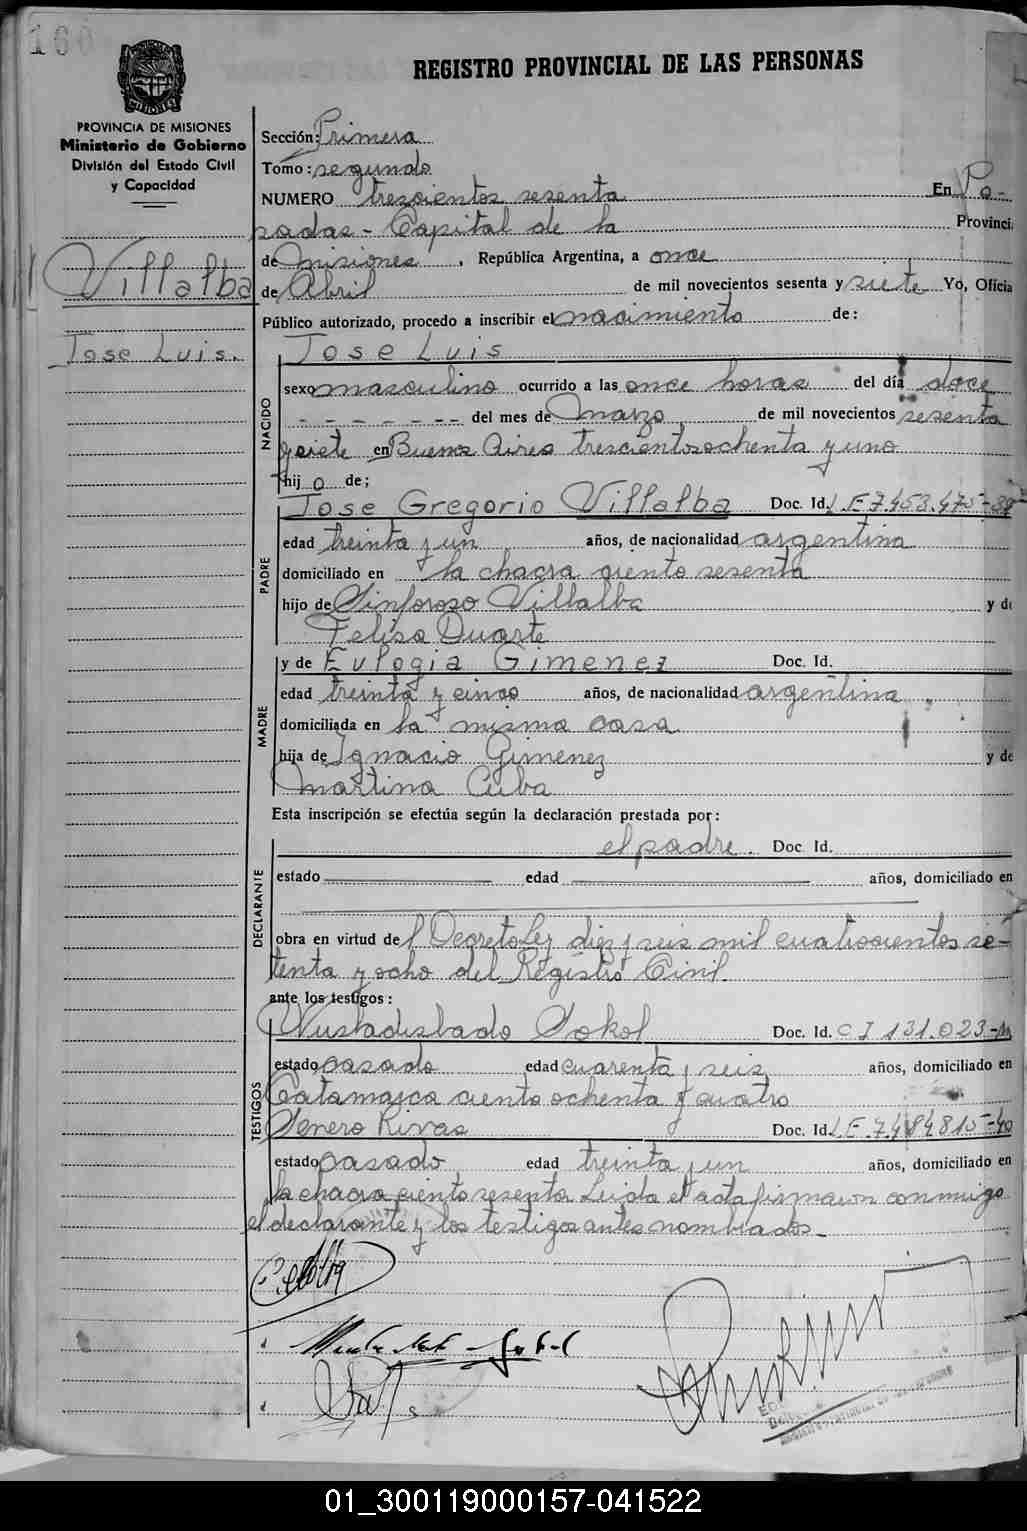 160
REGISTRO PROVINCIAL DE LAS PERSONAS
PROVINCIA DE MISIONES
Ministerio de Gobierno
División del Estado Civil
y Capacidad
Villalba
Jose Luis.
Sección: Primera
Tomo: segundo
NUMERO trescientos sesenta En Po-
sadas - Capital de la Provinci
de Misiones, República Argentina, a once
de Abril de mil novecientos sesenta y siete Yo, Oficia
Público autorizado, procedo a inscribir el nacimiento de:
NACIDO
Jose Luis
sexo masculino ocurrido a las once horas del día doce
- - - - - - - del mes de Marzo de mil novecientos sesenta
y siete en Buenos Aires trescientos ochenta y uno
hijo de;
PADRE
Jose Gregorio Villalba Doc. Id. L E 7.453.475-
edad treinta y un años, de nacionalidad argentina
domiciliado en la chacra ciento sesenta
hijo de Sinforoso Villalba y de
Felisa Duarte
MADRE
y de Eulogia Gimenez Doc. Id.
edad treinta y cinco años, de nacionalidad argentina
domiciliada en la misma casa
hija de Ignacio Gimenez y de
Martina Cuba
Esta inscripción se efectúa según la declaración prestada por:
DECLARANTE
el padre. Doc. Id.
estado edad años, domiciliado en
obra en virtud del Decreto Ley diez y seis mil cuatrocientos se-
tenta y ocho del Registro Civil.
ante los testigos:
TESTIGOS
Wustadislado Sokol Doc. Id. C I 131.023-
estado casado edad cuarenta y seis años, domiciliado en
Catamarca ciento ochenta y cuatro
Senero Rivas Doc. Id. L E 7.484.815-40
estado casado edad treinta y un años, domiciliado en
la chacra ciento sesenta Leida el acta firmaron conmigo
el declarante y los testigos antes nombrados.-
01_300119000157-041522